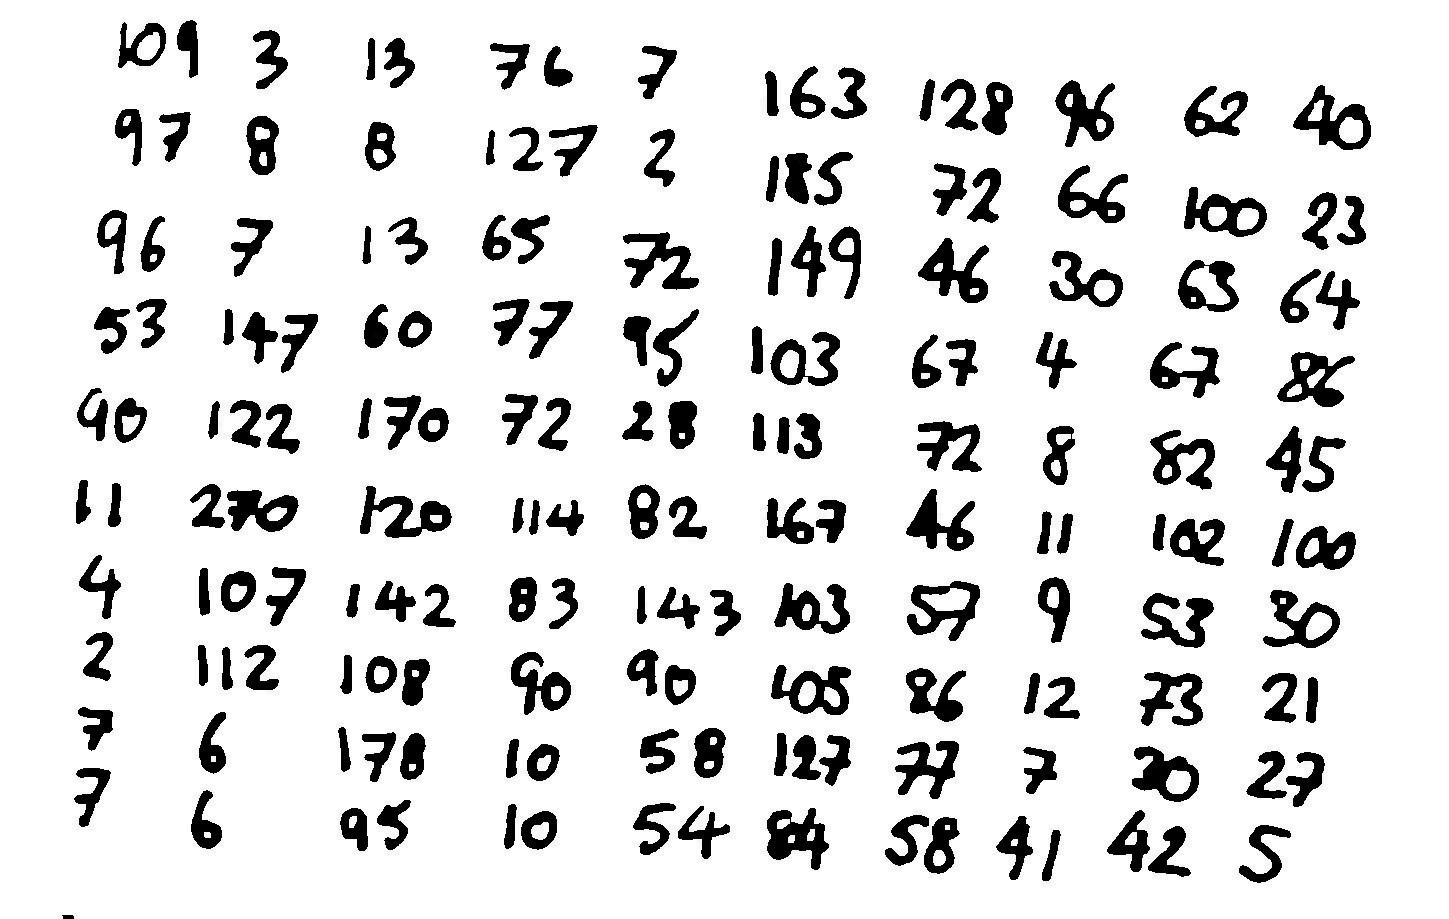 109 3 13 76 7 163 128 96 62 40
97 8 8 127 2 185 72 66 100 23
96 7 13 65 72 149 46 30 63 64
53 147 60 77 95 103 67 4 67 86
90 122 170 72 28 113 72 8 82 45
11 270 120 114 82 167 46 11 102 100
4 107 142 83 143 103 57 9 53 30
2 112 108 90 90 105 86 12 73 21
7 6 178 10 58 127 77 7 30 27
7 6 95 10 54 84 58 41 42 5